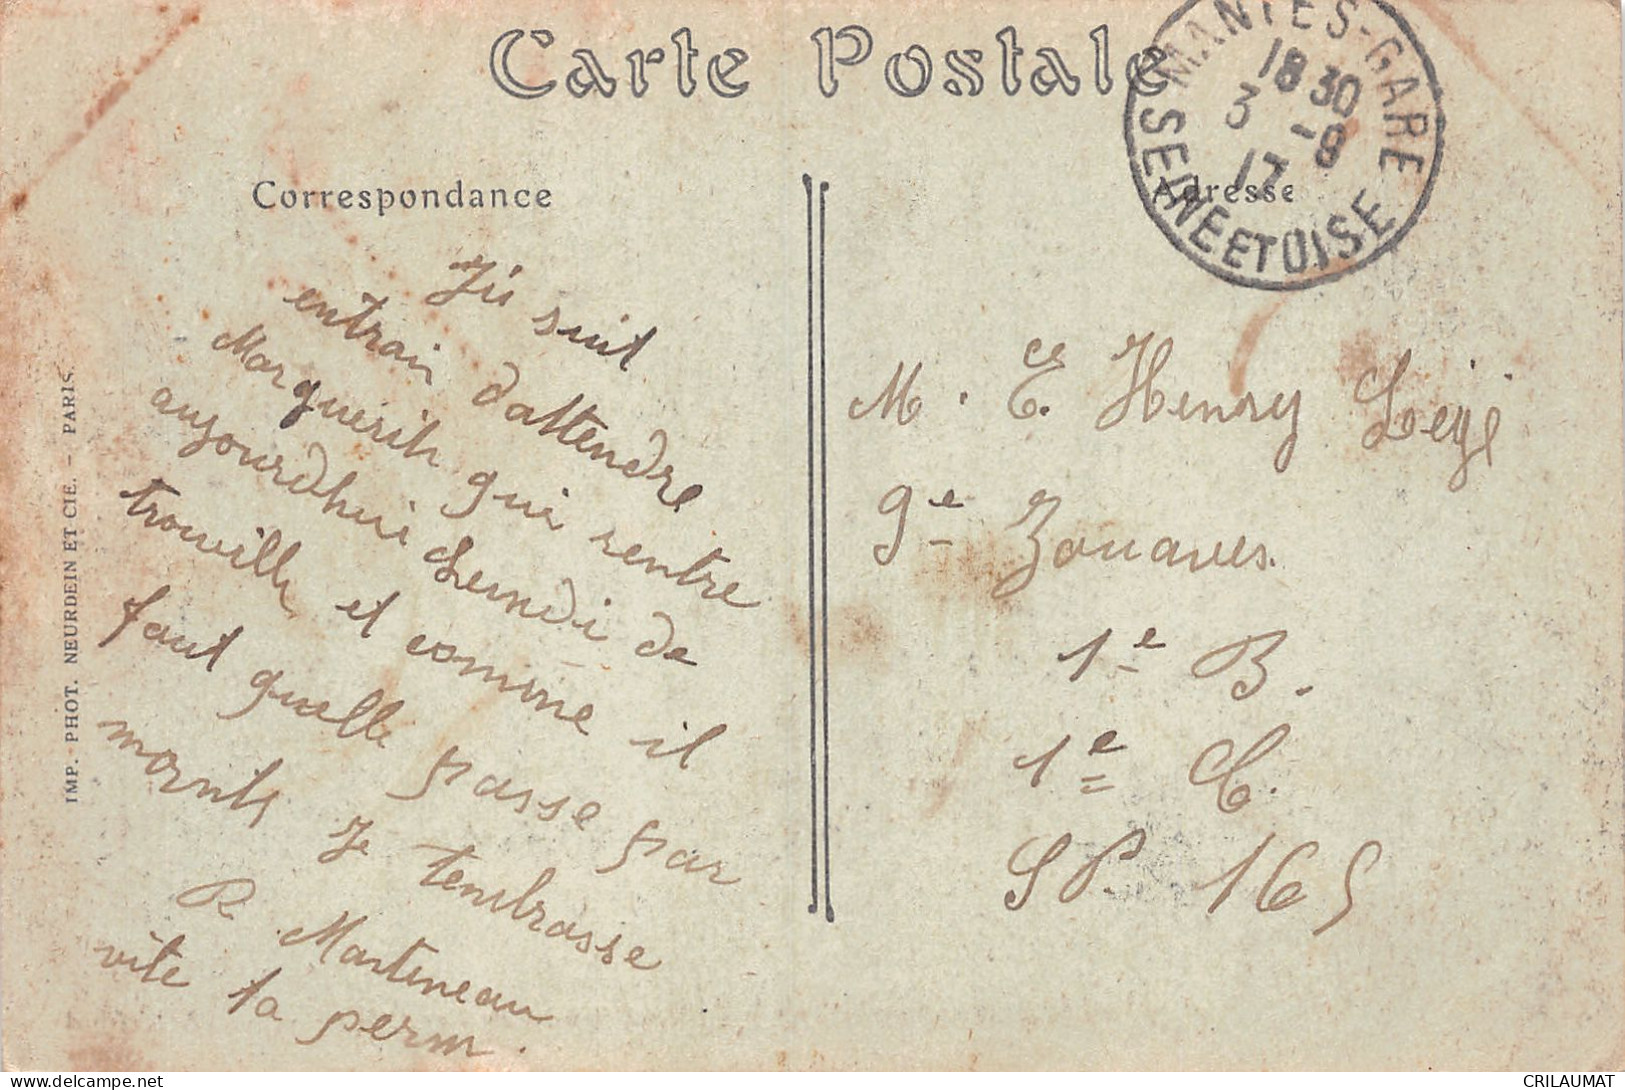 Carte Postale
MANTES-GARE
18 30
3 -9
17
SEINE ET OISE
Correspondance
Adresse
Ji suit
entrain dattendre
Marguerith qui rentre
aujourdhui Lundi de
trouvill et comme il
faut quelle passe par
mornts Je tembrasse
R Martineau
vite ta perm.
M. E. Henry
9e Zouaves.
1e B.
1e C.
SP. 165
IMP. PHOT. NEURDEIN ET CIE. - PARIS.
CRILAUMAT